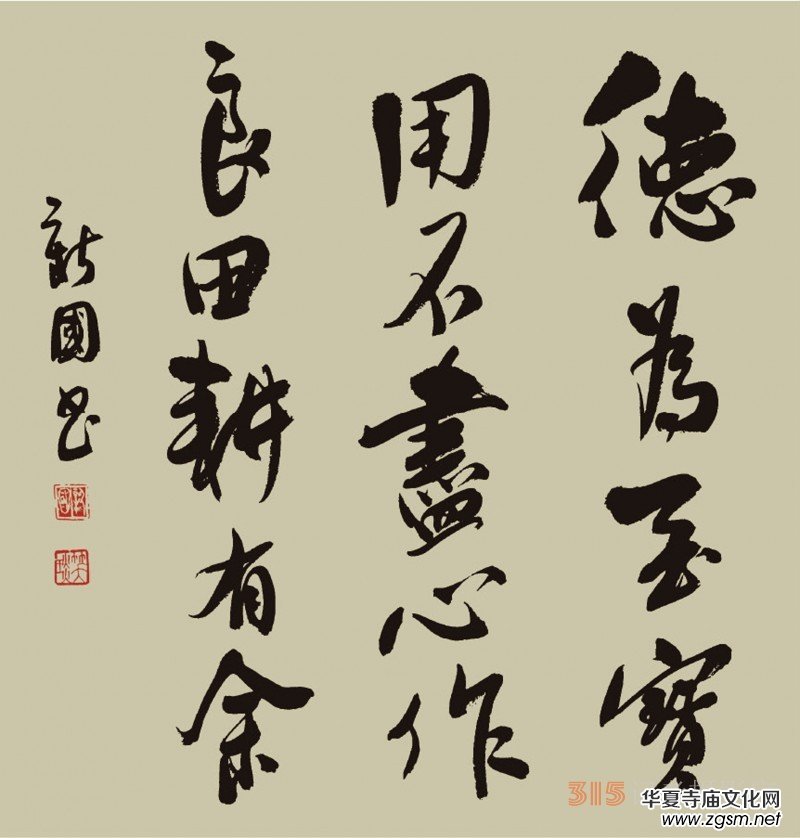 德为至寶
用不盡心作
良田耕有余
新國书
315
华夏寺庙文化网
www.zgsm.net